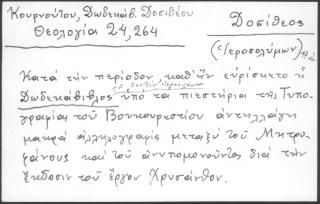 Κουρνούτου, Δωδεκάβ. Δοσιθέου
Θεολογία 24, 264
Δοσίθεος
(Ἱεροσολύμων)
Κατά τήν περίοδον καθ' ἥν εὑρίσκετο ἡ
τοῦ Δοσιθέου Ἱεροσολύμων
Δωδεκάβιβλος ὑπό τα πιεστήρια τῆς Τυπο-
γραφίας τοῦ Βουκουρεστίου ἀντηλλάγη
μακρά ἀλληλογραφία μεταξύ τοῦ Μητρο-
φάνους καί τοῦ ἀνυπομονοῦντος διά τήν
ἔκδοσιν τοῦ ἔργου Χρυσάνθου.